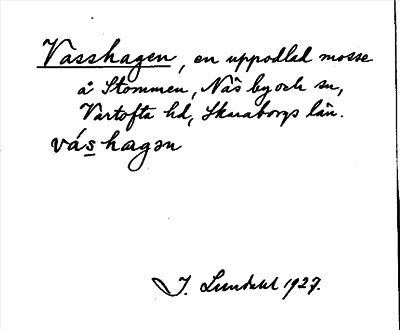 Vasshagen, en uppodlad mosse
å Stommen, Näs by och sn,
Vartofta hd, Skaraborgs län.
vás hagən
J. Lundahl 1927.